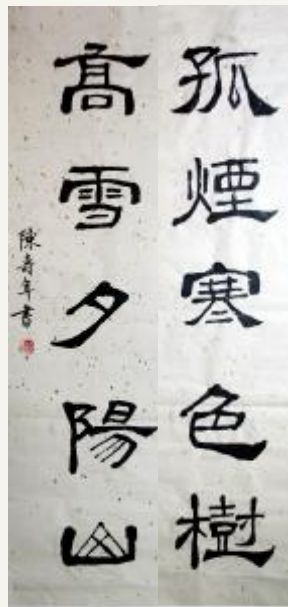 孤煙寒色樹
高雪夕陽山
陳壽年書